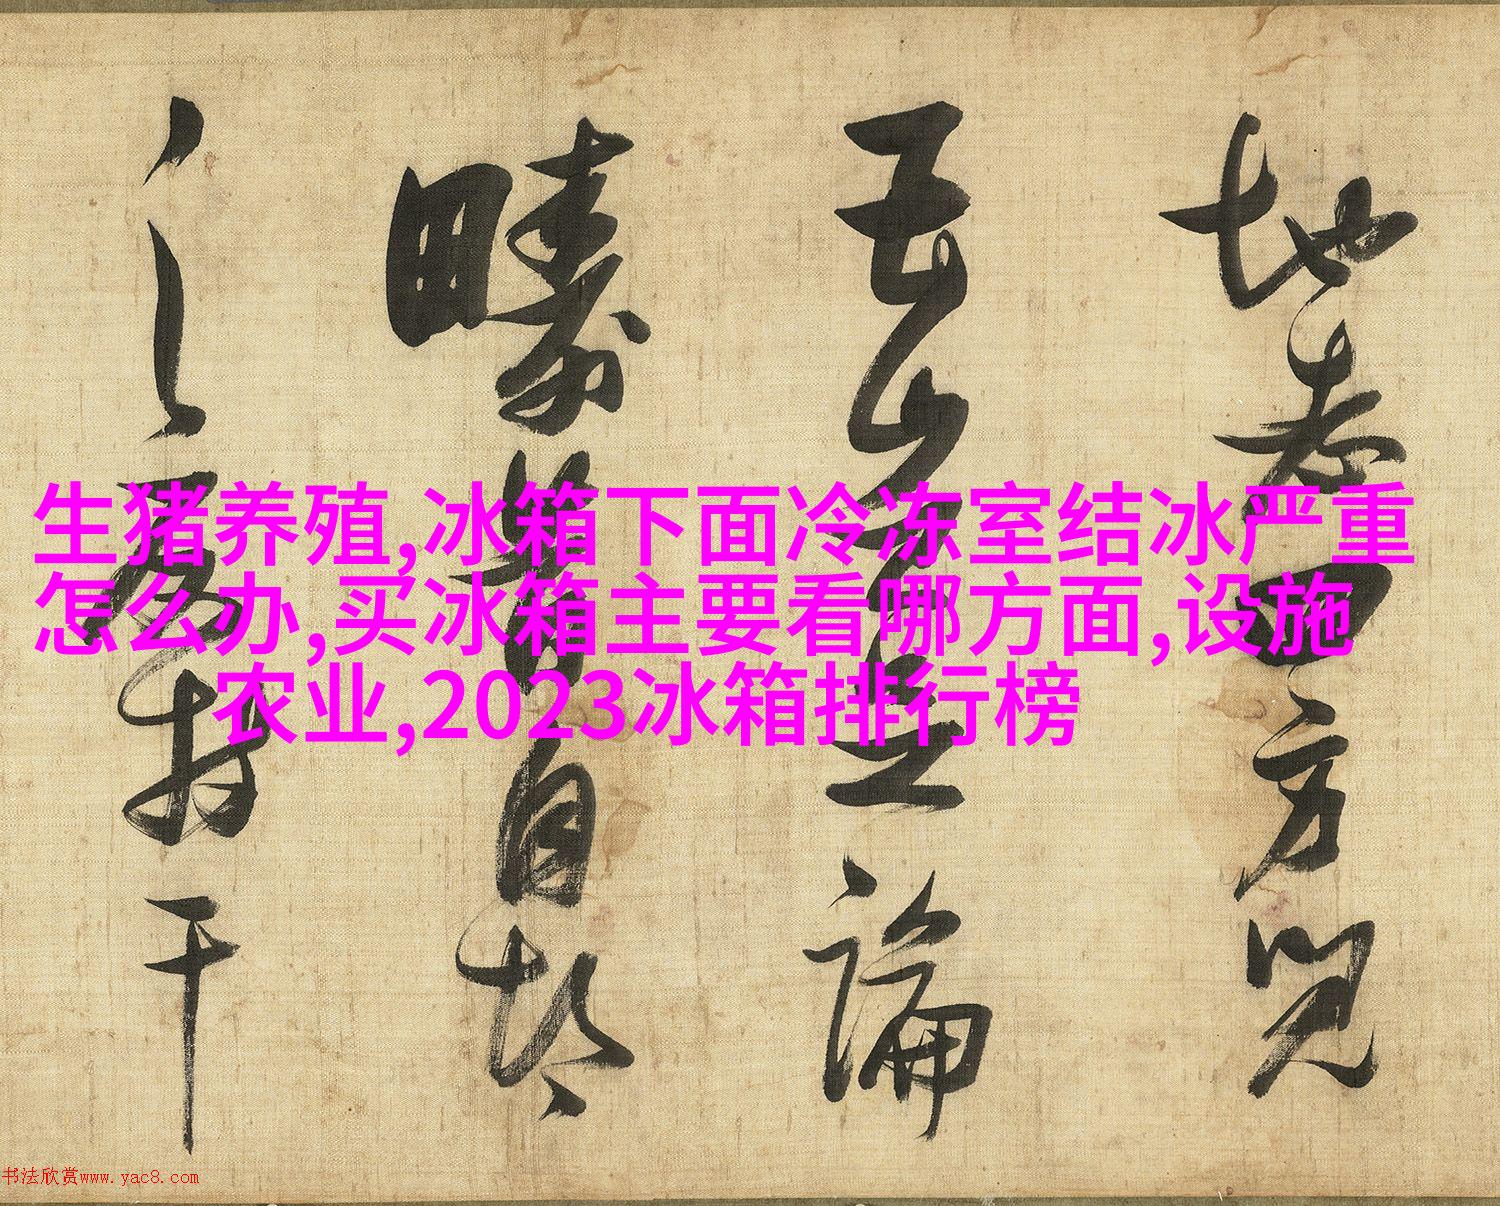 生猪养殖,冰箱下面冷冻室结冰严重
怎么办,买冰箱主要看哪方面,设施
农业,2023冰箱排行榜
地四方
立論
疇昔自
持干
书法欣赏www.yac8.com